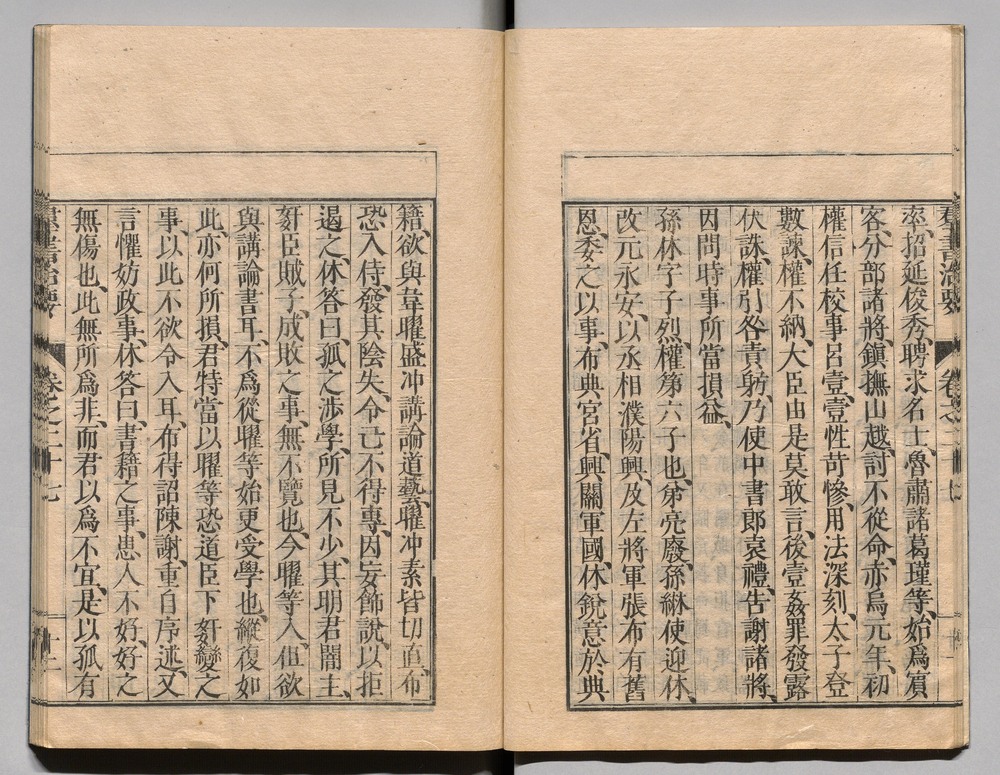 羣書治要 卷之二十七
率、招延俊秀、聘求名士、魯肅諸葛瑾等、始爲賓
客、分部諸將、鎭撫山越、討不從命、赤烏元年、初
權信任校事呂壹、壹性苛慘、用法深刻、太子登
數諫、權不納、大臣由是莫敢言、後壹姦罪發露
伏誅、權引咎責躬、乃使中書郎袁禮、告謝諸將、
因問時事所當損益、
孫休字子烈、權第六子也、弟亮廢、孫綝使迎休、
改元永安、以丞相濮陽興、及左將軍張布有舊
恩、委之以事、布典宮省、興關軍國、休銳意於典
籍、欲與韋曜盛冲講論道藝、曜冲素皆切直、布
恐入侍、發其陰失、令己不得專、因妄飾說、以拒
遏之、休答曰、孤之涉學、所見不少、其明君闇主、
姧臣賊子、成敗之事、無不覽也、今曜等入、但欲
與講論書耳、不爲從曜等始更受學也、縱復如
此、亦何所損、君特當以曜等恐道臣下姦變之
事、以此不欲令入耳、布得詔陳謝、重自序述、又
言懼妨政事、休答曰、書籍之事、患人不好、好之
無傷也、此無所爲非、而君以爲不宜、是以孤有
羣書治要 卷之二十七 十二